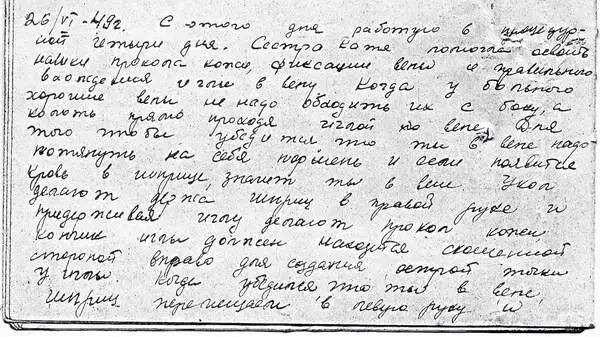 26/VI-49г. С этого дня работую в процедур-
ной четыре дня. Сестра Катя помогла освоить
навыки прокола кожи, фиксации вены и правильного
вхождения иглы в вену. Когда у больного
хорошие вены не надо обходить их с боку, а
колоть прямо проходя иглой по вене. Для
того чтобы убедится что ты в вене надо
потянуть на себя поршень и если появится
кровь в шприце, значит ты в вене. Укол
делают держа шприц в правой руке и
придерживая иглу делают прокол кожи,
кончик иглы должен находится скошенной
стороной вправо для создания острой точки
у иглы. Когда убедился что ты в вене,
шприц перемещаем в левую руку и